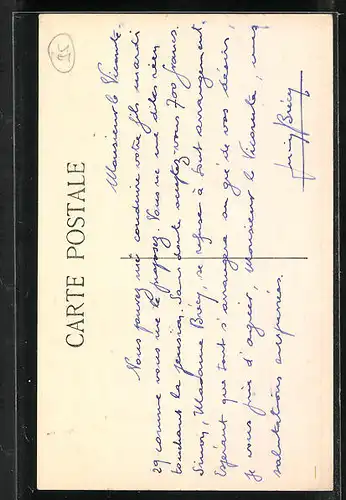 CARTE POSTALE
25
Monsieur le Vicomte
Vous pouvez me conduire votre fils mardi
29 comme vous me le proposez. Vous ne me dites rien
touchant la pension. Sans doute acceptez-vous 700 francs.
Sinon, Madame Brécy, se refuse à tout arrangement.
Espérant que tout s'arrangera au gré de vos désirs,
je vous prie d'agréer, Monsieur le Vicomte, mes
salutations empressées.
Brécy